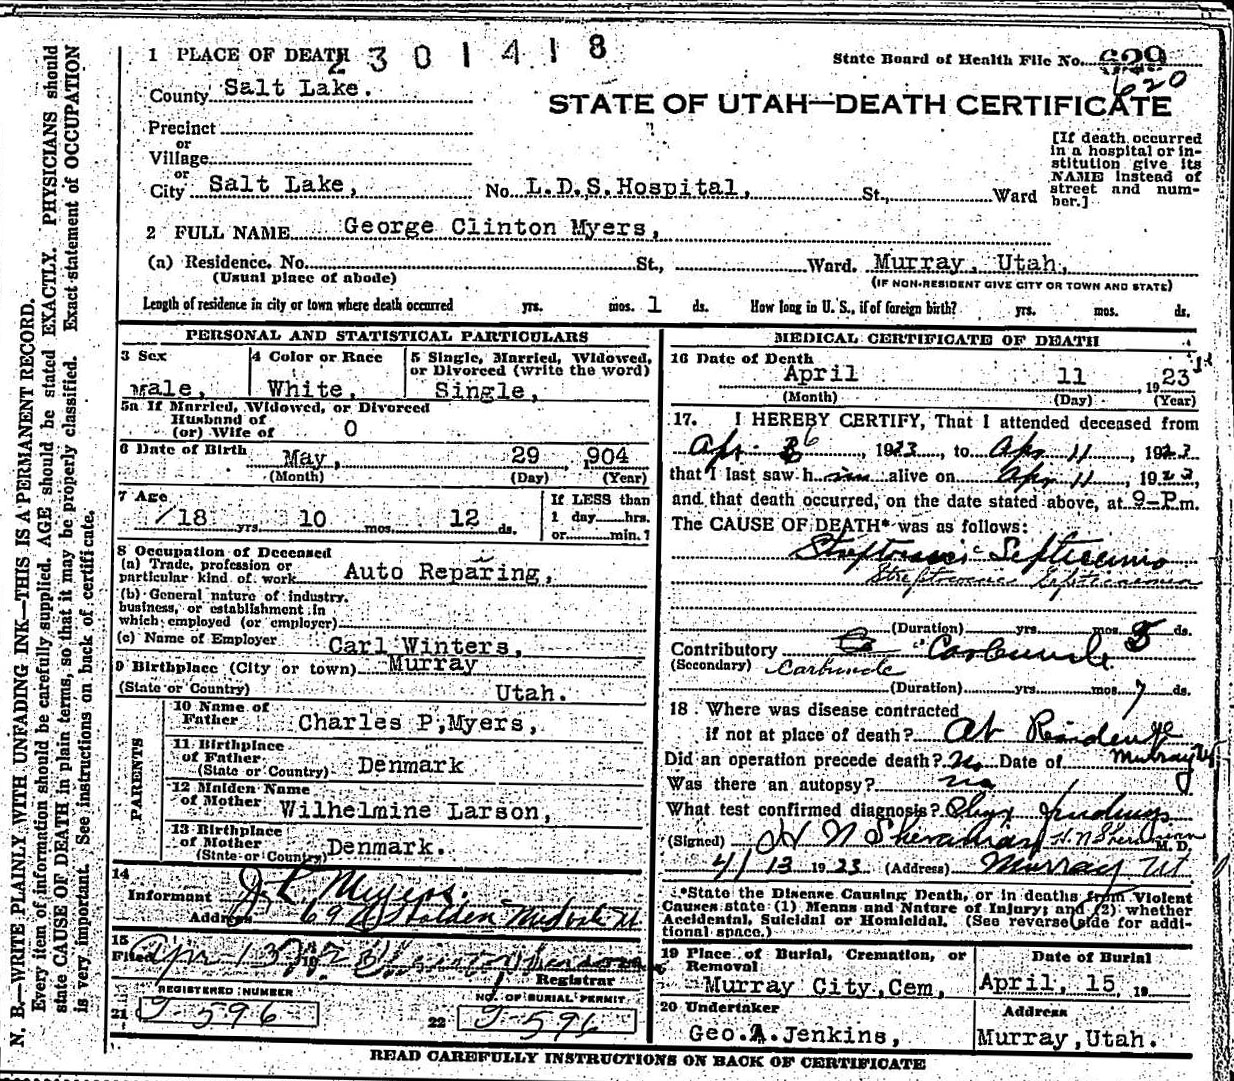 N. B.—WRITE PLAINLY WITH UNFADING INK—THIS IS A PERMANENT RECORD.
Every item of information should be carefully supplied. AGE should be stated EXACTLY. PHYSICIANS should
state CAUSE OF DEATH in plain terms, so that it may be properly classified. Exact statement of OCCUPATION
is very important. See instructions on back of certificate.
2 3 0 1 4 1 8
1 PLACE OF DEATH
State Board of Health File No. 629
620
County Salt Lake.
STATE OF UTAH—DEATH CERTIFICATE
Precinct
or
Village
or
City Salt Lake, No. L.D.S. Hospital, St., Ward
[If death occurred
in a hospital or in-
stitution give its
NAME instead of
street and num-
ber.]
2 FULL NAME George Clinton Myers,
(a) Residence. No. St., Ward. Murray, Utah,
(Usual place of abode) (IF NON-RESIDENT GIVE CITY OR TOWN AND STATE)
Length of residence in city or town where death occurred yrs. mos. 1 ds. How long in U. S., if of foreign birth? yrs. mos. ds.
PERSONAL AND STATISTICAL PARTICULARS
3 Sex
Male,
4 Color or Race
White,
5 Single, Married, Widowed,
or Divorced (write the word)
Single,
5a If Married, Widowed, or Divorced
Husband of
(or) Wife of O
6 Date of Birth May, 29 , 904
(Month) (Day) (Year)
7 Age
18 yrs. 10 mos. 12 ds.
If LESS than
1 day hrs.
or min.?
8 Occupation of Deceased
(a) Trade, profession or
particular kind of work Auto Reparing,
(b) General nature of industry,
business, or establishment in
which employed (or employer)
(c) Name of Employer Carl Winters,
9 Birthplace (City or town) Murray
(State or Country) Utah.
PARENTS
10 Name of
Father Charles P,Myers,
11 Birthplace
of Father
(State or Country) Denmark
12 Maiden Name
of Mother Wilhelmine Larson,
13 Birthplace
of Mother
(State or Country) Denmark.
14
Informant J. L. Myers.
Address 69 Holden Midvale U
15
Filed Apr 13 192
Registrar
REGISTERED NUMBER
21 J-596
NO. OF BURIAL PERMIT
22 J-596
MEDICAL CERTIFICATE OF DEATH
16 Date of Death
April 11 1923
(Month) (Day) (Year)
17. I HEREBY CERTIFY, That I attended deceased from
Apr 6 1923, to Apr 11, 1923
that I last saw him alive on Apr 11, 1923,
and that death occurred, on the date stated above, at 9-P.m.
The CAUSE OF DEATH* was as follows:
Streptococcic Septicemia
Streptococcic Septicemia
(Duration) yrs. mos. 5 ds.
Contributory Carbuncle
(Secondary) Carbuncle
(Duration) yrs. mos. 7 ds.
18 Where was disease contracted
if not at place of death? At Residence
Murray Ut
Did an operation precede death? No Date of
Was there an autopsy? no
What test confirmed diagnosis? Phys findings
(Signed) H N Sheranian H. N Sheranian M. D.
4/13 1923 (Address) Murray Ut
*State the Disease Causing Death, or in deaths from Violent
Causes state (1) Means and Nature of Injury; and (2) whether
Accidental, Suicidal or Homicidal. (See reverse side for addi-
tional space.)
19 Place of Burial, Cremation, or
Removal
Murray City,Cem,
Date of Burial
April, 15, 19
20 Undertaker
Geo.A.Jenkins,
Address
Murray,Utah.
READ CAREFULLY INSTRUCTIONS ON BACK OF CERTIFICATE